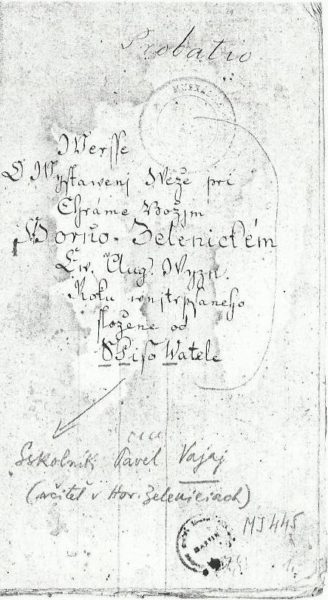 Probatio
Wersse
O Wystawenj Weže pri
Chráme Božjm
Horňo-Zelenickém
Ew. Aug. Wyzn.
Roku
složene od
SPiso Watele
Sskolnik Pavel Vajaj
(učiteľ v Hor. Zeleniciach)
MJ 445